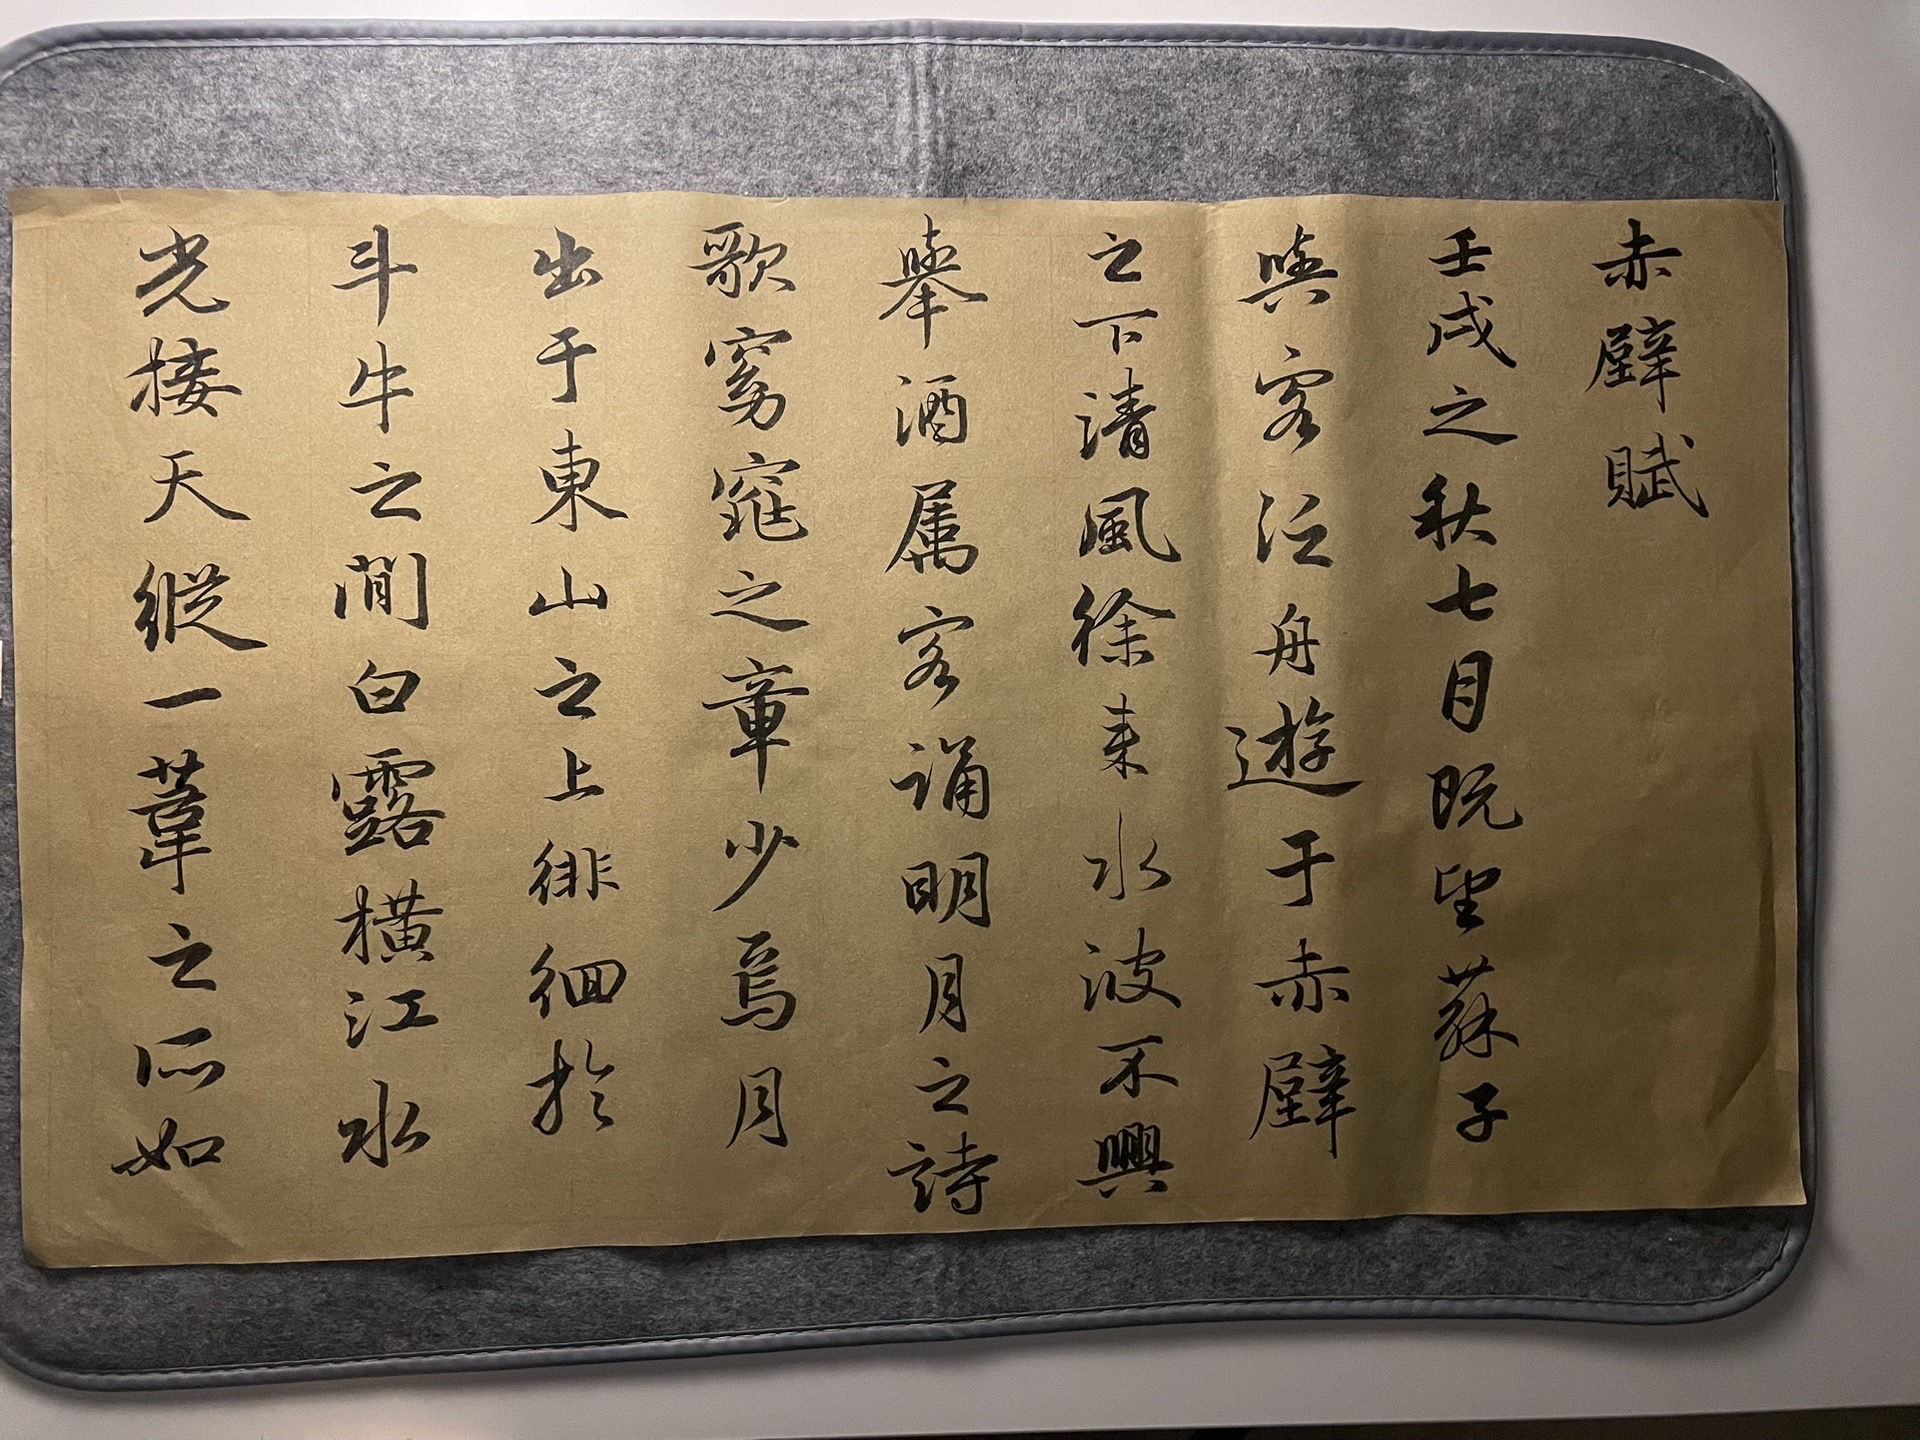 赤壁賦
壬戌之秋七月既望蘇子
與客泛舟遊于赤壁
之下清風徐来水波不興
舉酒属客誦明月之詩
歌窈窕之章少焉月
出于東山之上徘徊於
斗牛之間白露橫江水
光接天縱一葦之所如